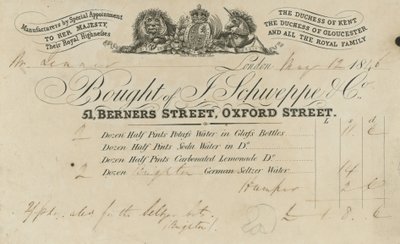 Manufacturers by Special Appointment
TO HER MAJESTY,
Their Royal Highnesses
THE DUCHESS OF KENT
THE DUCHESS OF GLOUCESTER
AND ALL THE ROYAL FAMILY
Mr. London May 12 1846
Bought of J. Schweppe & Co
51, BERNERS STREET, OXFORD STREET.
£ s d
2 Dozen Half Pints Potass Water in Glass Bottles 11 6
Dozen Half Pints Soda Water in Do.
Dozen Half Pints Carbonated Lemonade Do.
2 Dozen Brighton German Seltzer Water 14
Hamper 3
for the Seltzer £ 1 8 6